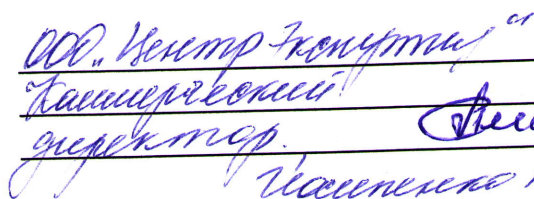 ООО „Центр Экспертиз"
Коммерческий
директор.